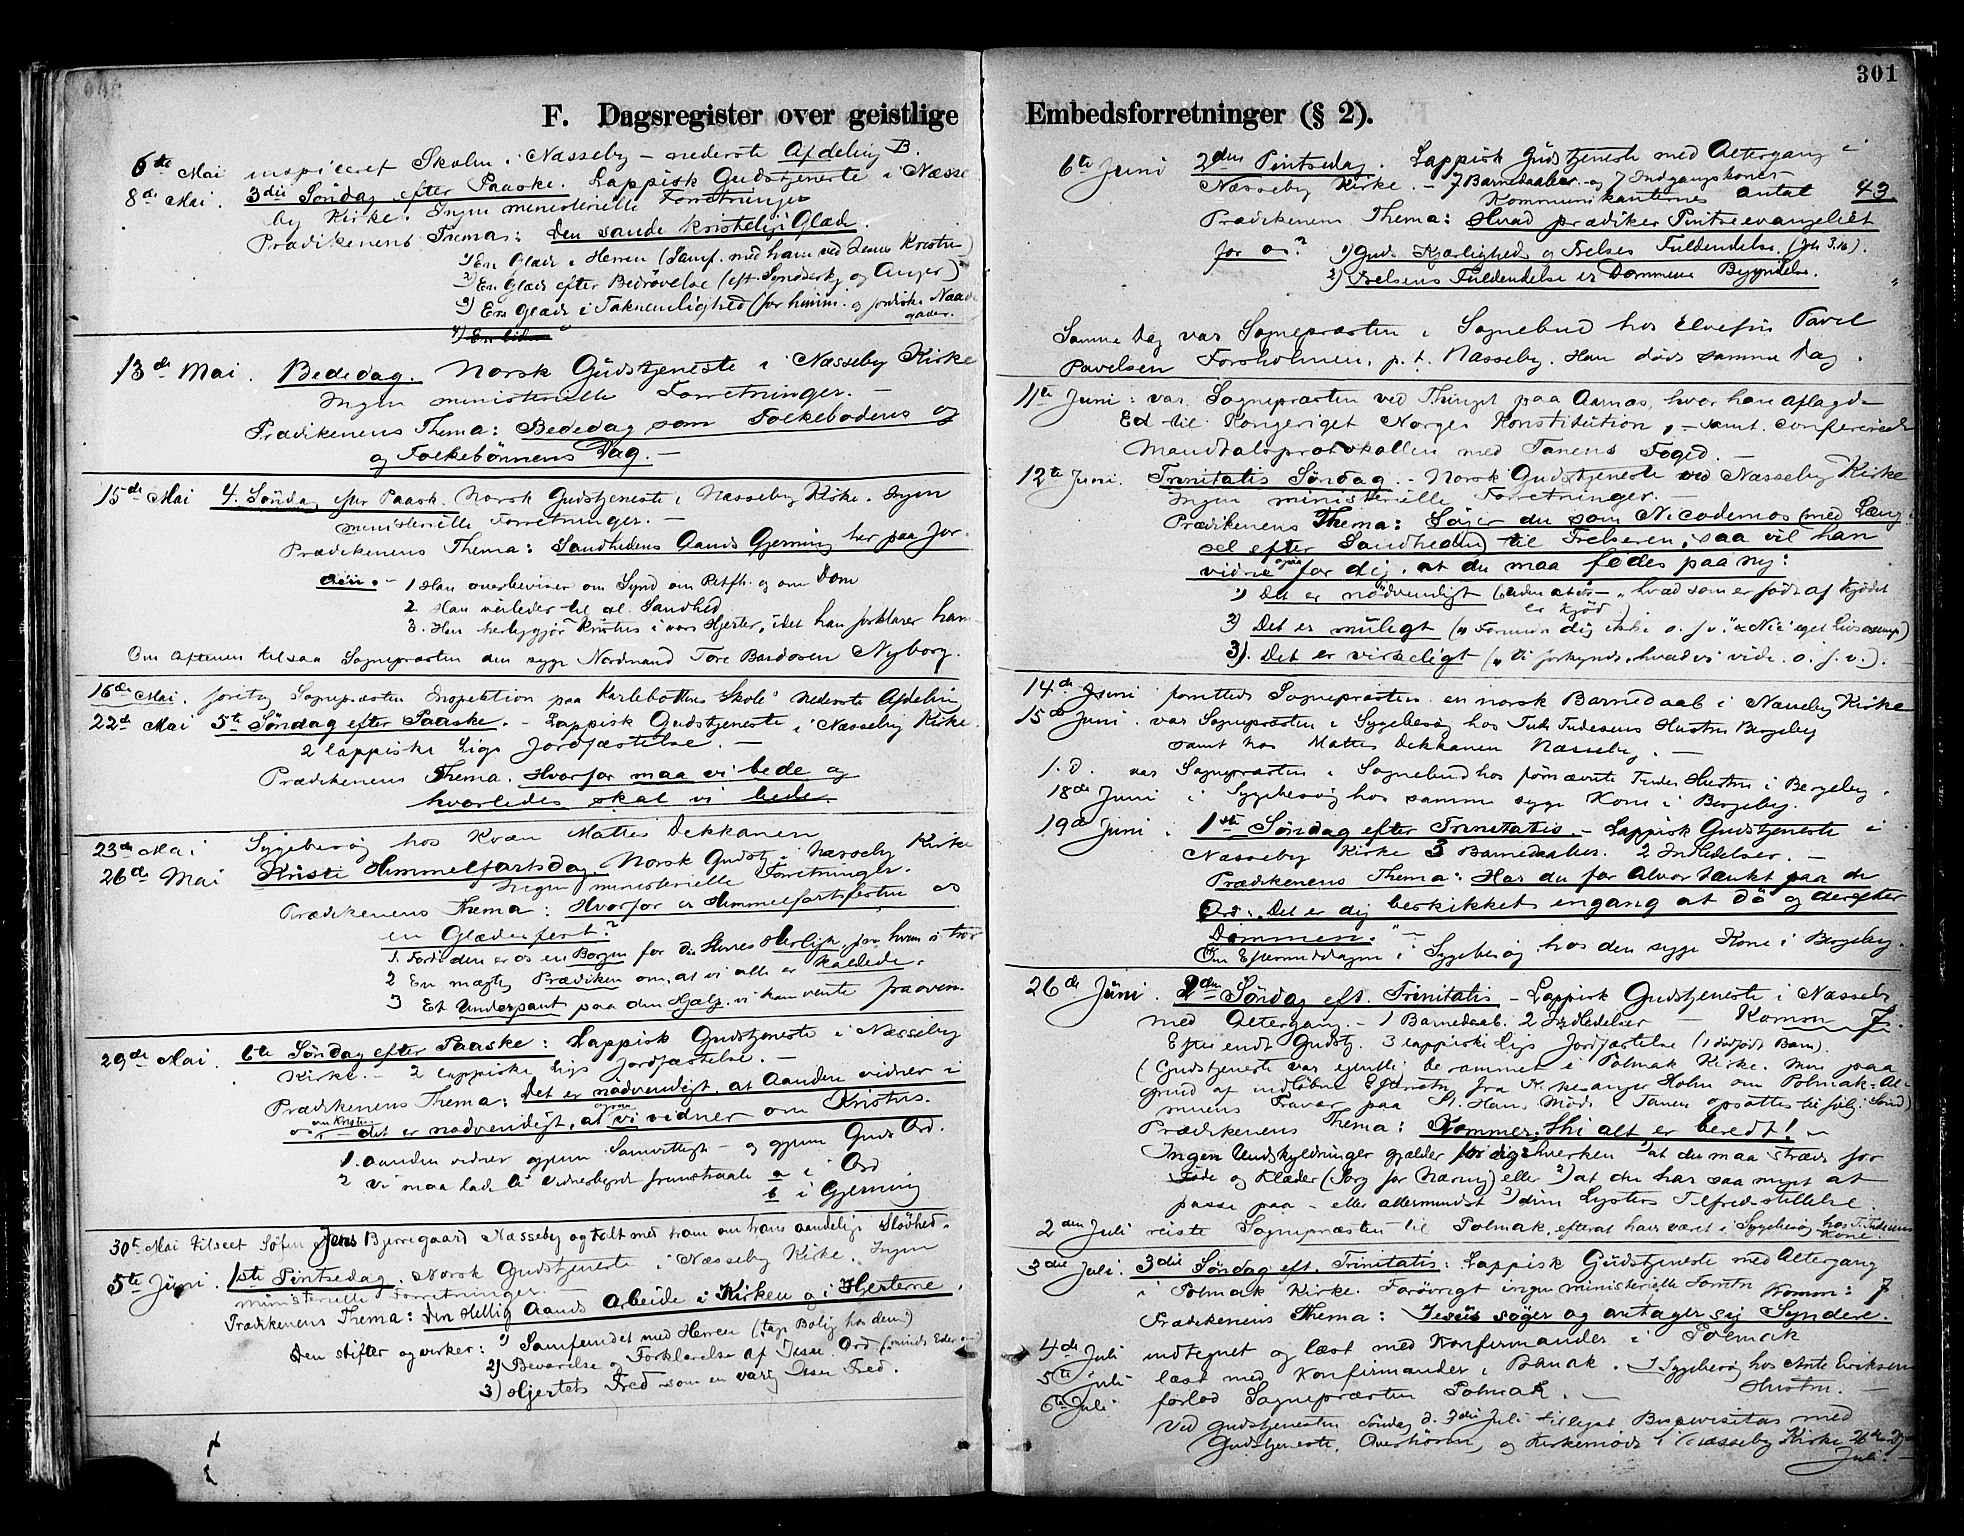 301
F. Dagsregister over geistlige Embedsforretninger (§ 2).
6te Mai inspiceret Skolen i Næsseby – nederste Afdeling B.
8de Mai. 3die Søndag efter Paaske. Lappisk Gudstjeneste i Næsse
by Kirke. Ingen ministerielle Forretninger
Prædikenens Thema: Den sande kristelige Glæde.
1) En Glæde i Herren (Samf. med ham ved Jesus Kristus)
2) En Glæde efter Bedrøvelse (eft. Syndserk. og Anger)
3) En Glæde i Taknemlighed (for himm. og jordiske Naade
gaver.
4) En
13de Mai. Bededag. Norsk Gudstjeneste i Næsseby Kirke
Ingen ministerielle Forretninger. –
Prædikenens Thema: Bededag som Folkebodens og
og Folkebønnens Dag. –
15de Mai 4. Søndag efter Paask. Norsk Gudstjeneste i Næsseby Kirke. Ingen
ministerielle Forretninger. –
Prædikenens Thema: Sandhedens Aands Gjerning her paa Jor-
den. – 1 Han overbeviser om Synd om Retfh. og om Dom
2 Han veileder til al Sandhed
3. Han Kristus i vore Hjerter, idet han forklarer ham
Om Aftenen tilsaa Sognepræsten den syge Nordmand Tore Bardosen Nyborg.
16de Mai. foretog Sognepræsten Inspektion paa Karlebottens Skole nederste Afdeling
22de Mai 5te Søndag efter Paaske. – Lappisk Gudstjeneste i Næsseby Kirke.
2 lappiske Ligs Jordfæstelse. –
Prædikenens Thema. Hvorfor maa vi bede og
hvorledes skal vi bede.
23de Mai Sygebesøg hos Kvæn Mattes Dekkanen
26de Mai Kristi Himmelfartsdag. Norsk Gudstj. i Næsseby Kirke
Ingen ministerielle Forretninger.
Prædikenens Thema: Hvorfor er Himmelfartsfesten os
en Glædesfest?
1. Fordi den er os en Borgen for den Herres Herligh. paa hvem vi tror
2 En mægtig Prædiken om, at vi alle er kaldede.
3 Et Underpant paa den Hjælp, vi kan vente fraoven.
29de Mai. 6te Søndag efter Paaske: Lappisk Gudstjeneste i Næsseby
Kirke. – 2 lappiske Ligs Jordfæstelse. –
Prædikenens Thema: Det er nødvendigt, at Aanden vidner i
os om Kristus – det er nødvendigt, at ogsaa vi vidner om Kristus.
1. Aanden vidner gjennem Samvittigh – og gjennem Guds Ord.
2 Vi maa lade Vidnesbyrd fremstraale a i Ord
b i Gjerning
30te Mai tilseet Søfren Jens Bjerregaard Næsseby og talt med ham om hans aandelige Sløvhed.
5te Juni. 1ste Pintsedag. Norsk Gudstjeneste i Næsseby Kirke. Ingen
ministerielle Forretninger.
Prædikenens Thema: Den Hellig Aands Arbeide i Kirken og i Hjerterne.
Den stifter og virker: 1) Samfundet med Herren (tage Bolig hos dem)
2) Bevarelse og Forklarelse af Jesu Ord (minde Eder om)
3) Hjertets Fred som en varig Jesu Fred.
6te Juni 2den Pintsedag. Lappisk Gudstjeneste med Altergang i
Næsseby Kirke. – 7 Barnedaaber – og 7 Indgangskoner
Kommunikanternes Antal 43.
Prædikenens Thema: Hvad prædiker Pintseevangeliet
for os? 1) Guds Kjærligheds og Frelses Fuldendelse. (Joh 3.16).
2) Frelsens Fuldendelse er Dommens Begyndelse.
Samme Dag var Sognepræsten i Sognebud hos Elvefin Pavel
Pavelsen Forsholmen, p. t. Næsseby. Han døde samme Dag.
11te Juni: var Sognepræsten ved Thinget paa Aarnæs, hvor han aflagde
Ed til Kongeriget Norges Konstitution, – samt confererede
Mandtalsprotokollen med Tanens Foged. –
12te Juni. Trinitatis Søndag. – Norsk Gudstjeneste ved Næsseby Kirke
Ingen ministerielle Forretninger. –
Prædikenens Thema: Søger du som Nicodemos (med Læng
sel efter Sandheden) til Frelseren, saa vil han
vidne ogsaa for dig, at du maa fødes paa ny:
1) Det er nødvendigt ( – „hvad som er født af Kjødet
er Kjød")
2) Det er muligt („Forundre dig ikke o. s. v." & Nic. eget Livsexemp)
3). Det er virkeligt („vi forkynde, hvad vi vide. o. s. v.). –
14de Juni forrettede Sognepræsten en norsk Barnedaab i Næsseby Kirke
15de Juni. var Sognepræsten i Sygebesøg hos Tude Tudesens Hustru Bergeby
samt hos Mattes Dekkanen Næsseby. –
1. d. var Sognepræsten i Sognebud hos førnævnte Tudes Hustru i Bergeby.
18de Juni i Sygebesøg hos samme syge Kone i Bergeby.
19de Juni. 1ste Søndag efter Trinitatis. – Lappisk Gudstjeneste i
Næsseby Kirke 3 Barnedaaber. 2 Indledelser. –
Prædikenens Thema: Har du for Alvor tænkt paa de
Ord: „Det er dig beskikket engang at dø og derefter
Dommen." –
Om Eftermiddagen i Sygebesøg hos den syge Kone i Bergeby.
26de Juni. 2den Søndag eft. Trinitatis – Lappisk Gudstjeneste i Næsseby
med Altergang. – 1 Barnedaab. 2 Indledelser – Komm 7.
Efter endt Gudstj. 3 lappiske Ligs Jordfæstelse (1 dødfødt Barn).
(Gudstjeneste var egentlig berammet i Polmak Kirke. Men paa
Grund af indløben Efterretn. fra Kirkesanger Holm om Polmak-Al-
muens Fravær paa St. Hans Møde i Tanen opsattes til følg. Sønd)
Prædikenens Thema: Kommer, thi alt er beredt! –
Ingen Undskyldninger gjælder for dig: hverken 1) at du maa stræde for
Føde og Klæder (Sorg for Næring) eller 2) at du har saa meget at
passe paa – eller allermindst 3) din Lysters Tilfredsstillelse
2den Juli reiste Sognepræsten til Polmak, efterat have været i Sygebesøg hos T. Tudesens
Kone.
3die Juli. 3die Søndag eft. Trinitatis: Lappisk Gudstjeneste med Altergang
i Polmak Kirke. Forøvrigt ingen ministerielle Forretn Komm: 7
Prædikenens Thema: Jesus søger og antager sig Syndere.
4de Juli indtegnet og læst med Konfirmander i Polmak
5te Juli læst med Konfirmander i Polmak. I Sygebesøg hos Ante Eriksens
Hustru. –
6te Juli forlod Sognepræsten Polmak. –
Ved Gudstjenesten Søndag d. 3die Juli tillyst Bispevisitas med
Gudstjeneste, Overhøren, og Kirkemøde i Næsseby Kirke 26de 27de
Juli. –